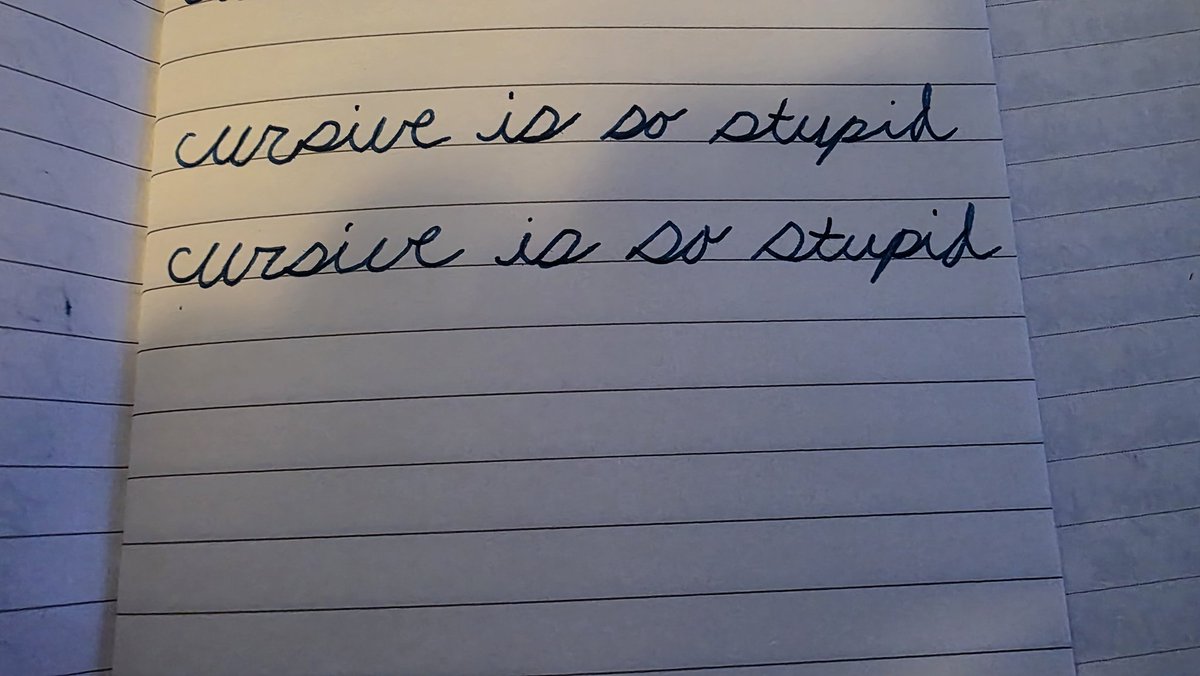 cursive is so stupid
cursive is so stupid